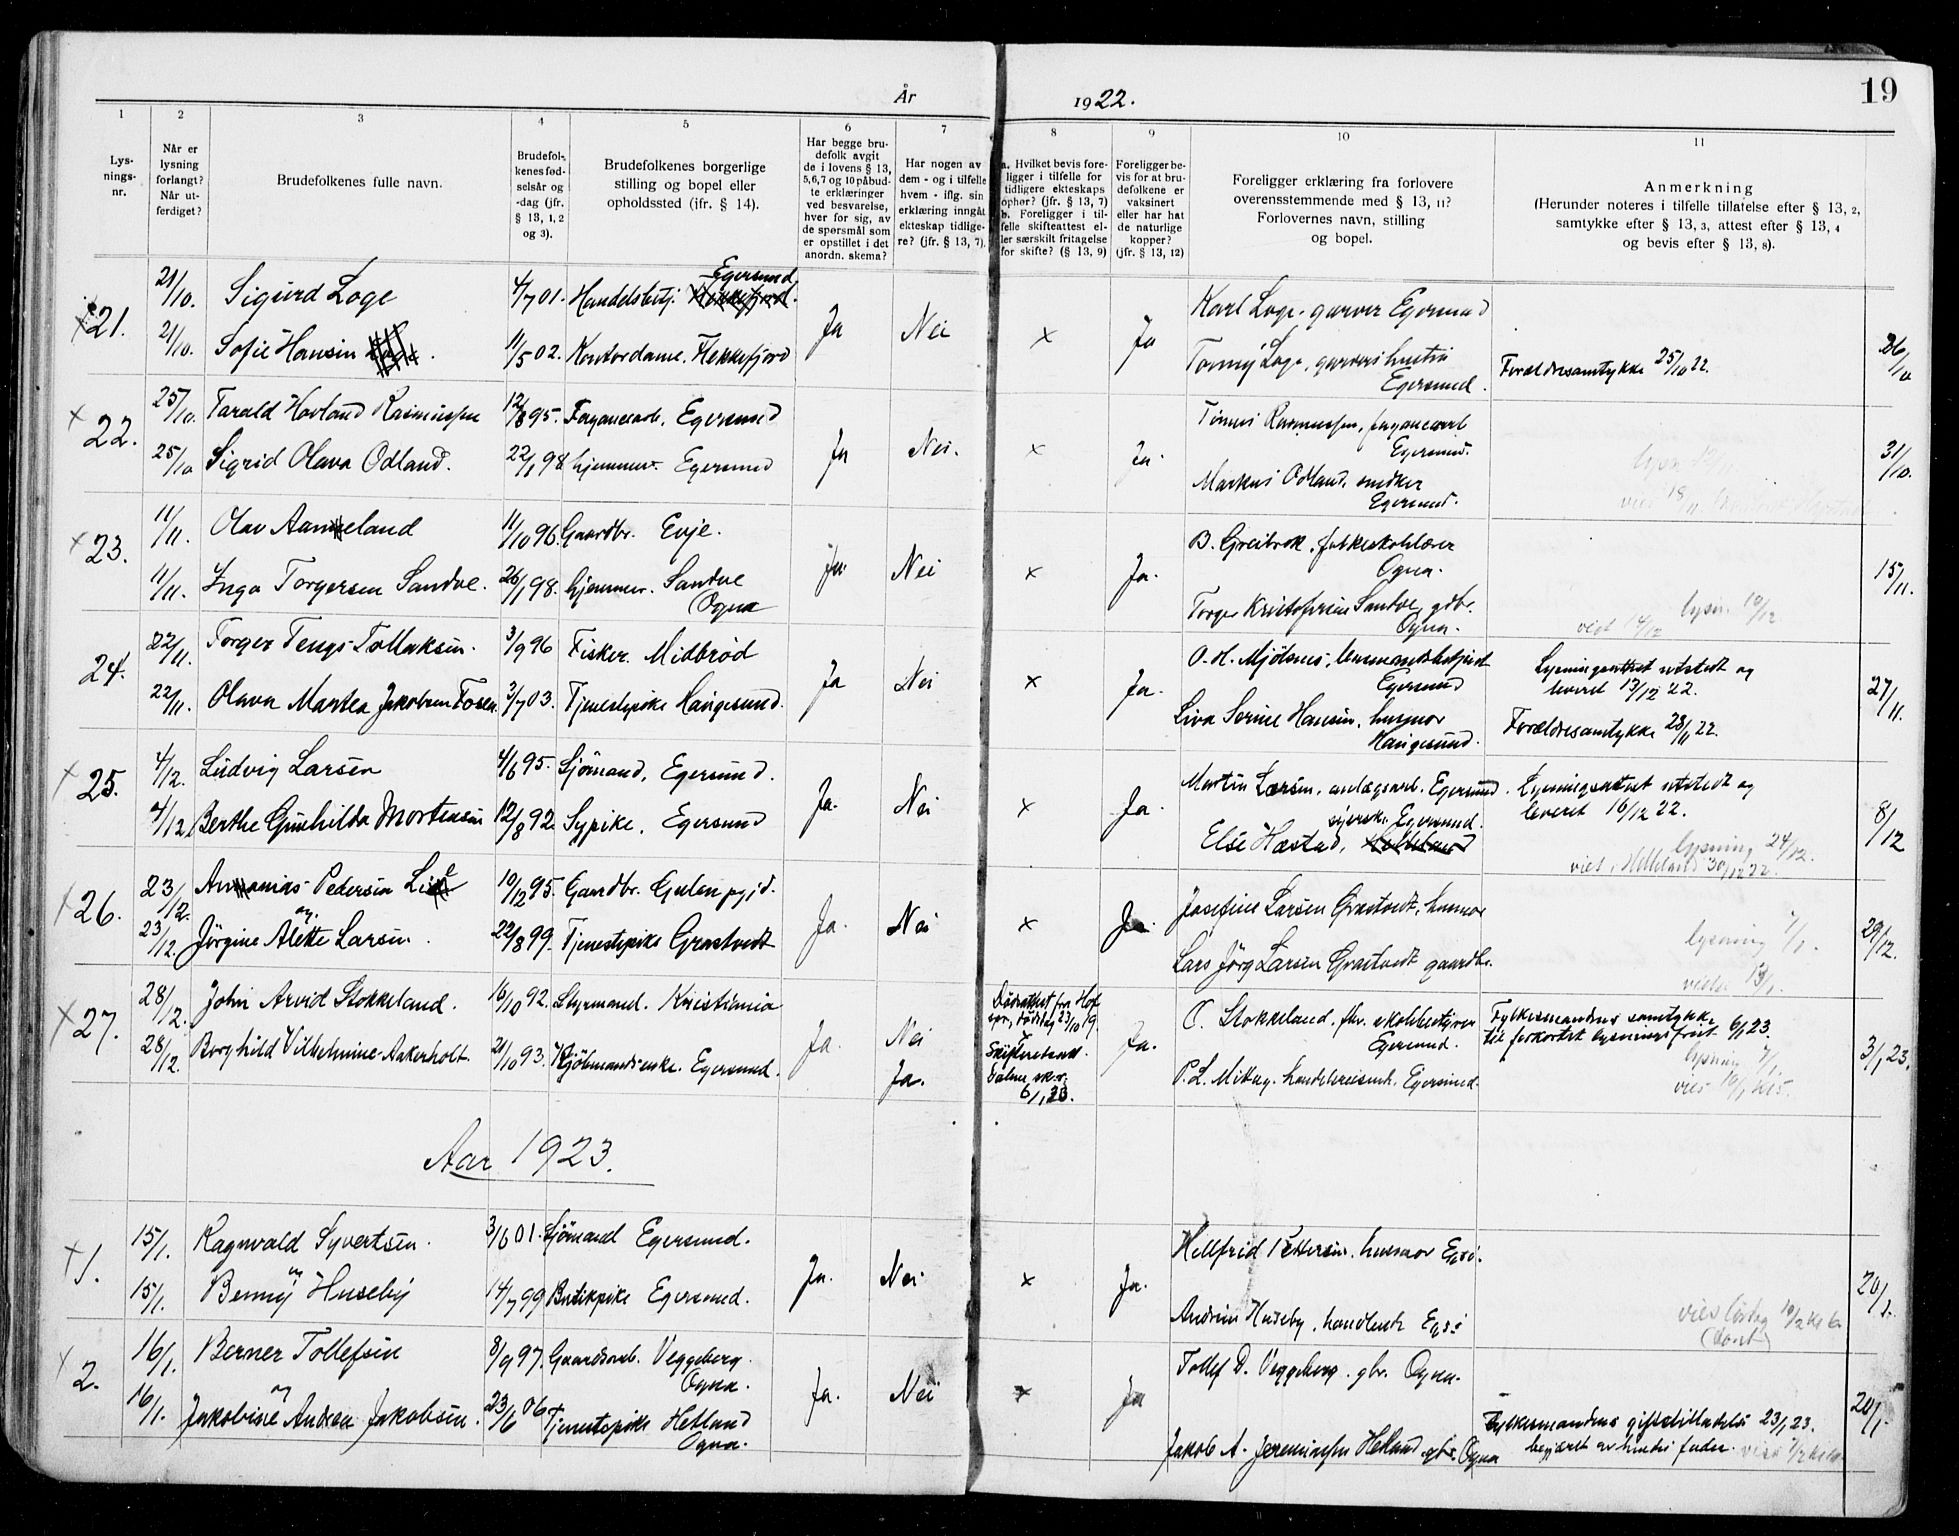 År 1922. 19
1 2 3 4 5 6 7 8 9 10 11
Lys-
nings-
nr.
Når er
lysning
forlangt?
Når ut-
ferdiget?
Brudefolkenes fulle navn.
Brudefol-
kenes fød-
selsår og
-dag (jfr.
§ 13, 1, 2
og 3).
Brudefolkenes borgerlige
stilling og bopel eller
opholdssted (jfr. § 14).
Har begge bru-
defolk avgit
de i lovens § 13,
5,6,7 og 10 påbud-
te erklæringer
ved besvarelse,
hver for sig, av
de spørsmål som
er opstillet i det
anordn. skema?
Har nogen av
dem - og i tilfelle
hvem - iflg. sin
erklæring inngåt
ekteskap tidlige-
re? (jfr. § 13, 7).
a. Hvilket bevis fore-
ligger i tilfelle for
tidligere ekteskaps
ophør? (jfr. § 13, 7)
b. Foreligger i til-
felle skifteattest el-
ler særskilt fritagelse
for skifte? (§ 13, 9)
Foreligger be-
vis for at bru-
defolkene er
vaksinert
eller har hat
de naturlige
kopper?
(jfr. § 13, 12)
Foreligger erklæring fra forlovere
overensstemmende med § 13, 11?
Forlovernes navn, stilling
og bopel.
Anmerkning
(Herunder noteres i tilfelle tillatelse efter § 13, 2,
samtykke efter § 13, 3, attest efter § 13, 4
og bevis efter § 13, 8).
21. 21/10. Sigurd Loge 4/7 01. Handelsbetj. Egersund Ja Nei × Ja Karl Loge, garver Egersund 26/10
21/10. Sofie Hansen 11/5 02. Kontordame. Flekkefjord Tomy Loge, garvers hustru
Egersund. Forældresamtykke 25/10 22.
22. 25/10. Tarald Hovland Rasmussen 12/8 95. Fayancearb. Egersund Ja Nei. × Ja. Rasmussen, fayancearb
Egersund. 31/10.
25/10 Sigrid Olava Odland. 22/1 98 hjemmev. Egersund Markus Odland, snedker
Egersund. viet 18/11
23. 11/11. Olav Aameland 11/10 96. Gaardbr. Evje. Ja Nei × Ja. B. Greibrok, folkeskolelærer
Ogna. 15/11.
11/11. Inga Torgersen Sandve. 26/1 98. hjemmev. Sandve
Ogna Torger Kristofersen Sandve, gdbr.
Ogna. lysn. 10/12
viet 14/12
24. 22/11. Torger Tengs Tollaksen. 3/9 96 Fisker. Midbrød Ja Nei × Ja. O. H. Mjölsnes, lensmandsbetjent
Egersund Lysningsattest utstedt og
leveret 13/12 22. 27/11.
22/11. Olava Martea Jakobsen Fosen 3/7 03. Tjenestepike Haugesund. Liva Serine Hansen, husmor
Haugesund. Forældresamtykke 28/11 22.
25. 4/12. Ludvig Larsen 4/6 95. Sjömand, Egersund. Ja. Nei × Ja Martin Larsen, anlægsarb. Egersund. Lysningsattest utstedt og
leveret 16/12 22. 8/12
4/12. Berthe Gunhilda Mortensen 12/8 92. Sypike, Egersund syersk. Egersund.
Else Hæstad, Helleland lysning 24/12.
viet i Helleland 30/12 22.
26. 23/12. Ananias Pedersen Lie 10/12 95. Gaardbr. Ja. Nei × Ja. Josefine Larsen Grastvedt, husmor 29/12.
23/12. og
Jörgine Alette Larsen. 22/8 99. Tjenestepike Grastvedt Lars Jörg. Larsen Grastvedt gaardbr. lysning 7/1.
viet 13/1.
27. 28/12. John Arvid Stokkeland. 16/10 92. Styrmand. Kristiania Ja. Nei Dödsattest fra Hof
spr., dödsdag 23/10 19. Ja. O. Stokkeland, fhv. skolebestyrer
Egersund. Fylkesmandens samtykke
til forkortet lysningsfrist 6/1 23. 3/1 23.
28/12. Borghild Vilhelmine Aakerholt. 21/10 93. Kjöbmandsenke. Egersund. Ja. Skifteattest
Dalane sk.r.
6/1 23. P. L. Mittag, handelsreisende, Egersund. lysning 7/1.
vies 10/1 kl 5.
Aar 1923.
1. 15/1. Ragnvald Syvertsen. 3/6 01. Sjömand Egersund. Ja. Nei × Ja. Hellfrid Pettersen, husmor Egsd. 20/1.
15/1. og
Benny Huseby 14/7 99 Butikpike Egersund. Andreas Huseby, handlende Egsd vies lørdag 10/2 kl 6.
2. 16/1. Berner Tollefsen 8/9 97. Gaardsarb. Veggeberg.
Ogna. Ja. Nei × Ja Tollef D. Veggeberg, gbr. Ogna. 20/1.
16/1. og
Jakobine Andrea Jakobsen. 23/6 06 Tjenestepike Hetland
Ogna. Jakob A. Jeremiassen Hetland gbr. Ogna Fylkesmandens giftetilladelse 23/1 23.
begjæret av hendes fader.